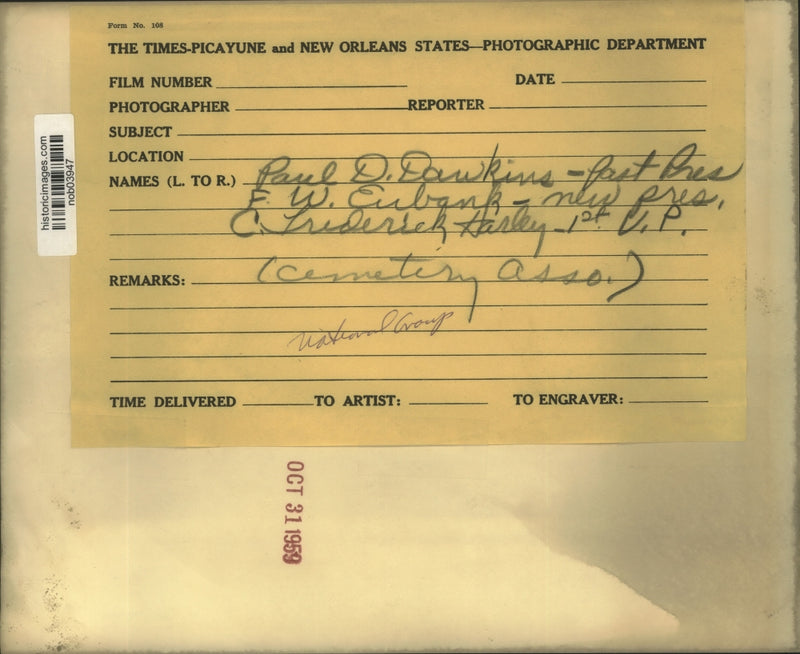 Form No. 108
THE TIMES-PICAYUNE and NEW ORLEANS STATES—PHOTOGRAPHIC DEPARTMENT
FILM NUMBER DATE
PHOTOGRAPHER REPORTER
SUBJECT
LOCATION
NAMES (L. TO R.) Paul D. Dawkins - past Pres
F. W. Eubank - new pres.
C. Frederick Harley - 1st V.P.
REMARKS: (Cemetery Asso.)
National Group
TIME DELIVERED TO ARTIST: TO ENGRAVER:
historicimages.com
nob03947
OCT 31 1959